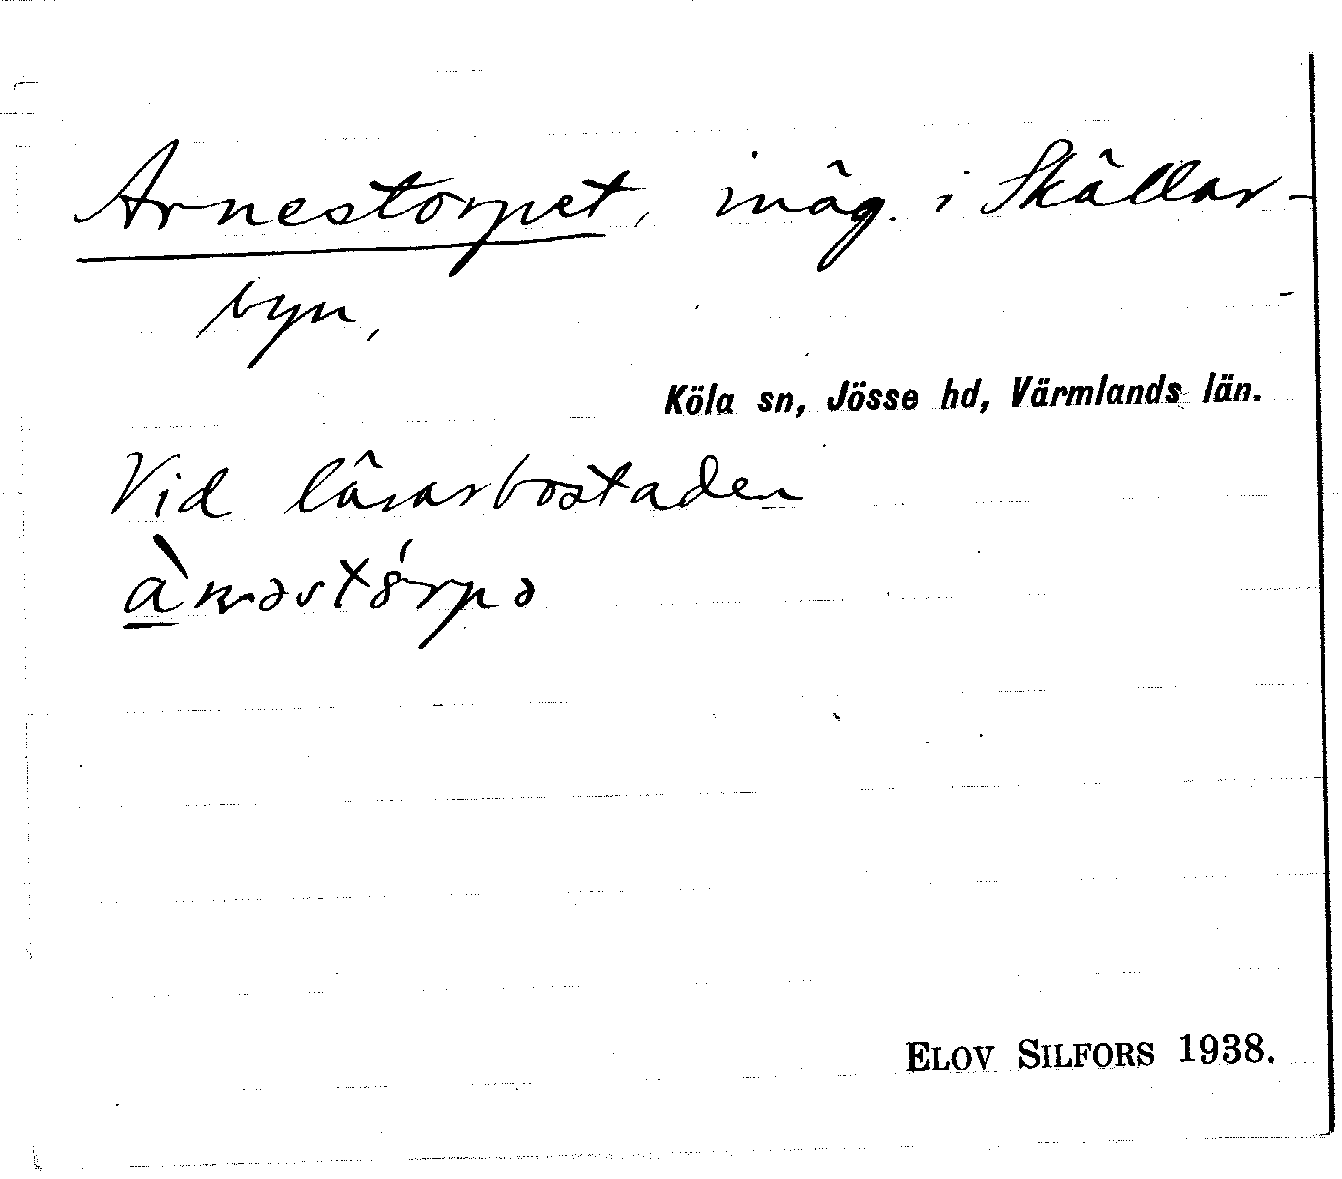 Arnestorpet, inäg. i Skällar-
byn,
Köla sn, Jösse hd, Värmlands län.
Vid lärarbostaden
ELOV SILFORS 1938.